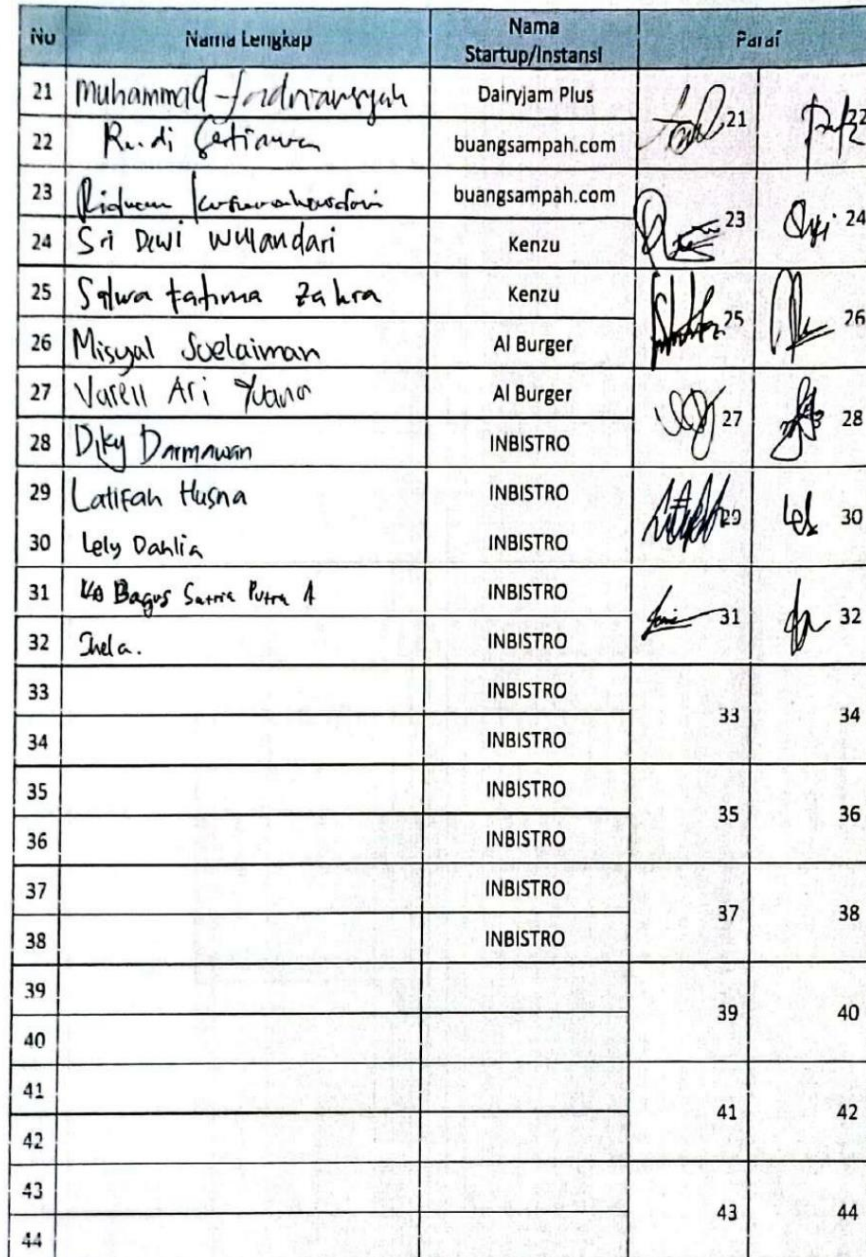 No Nama Lengkap Nama Startup/Instansi Paraf
21 Muhammad Dairyjam Plus 21
22 Rudi Setiawan buangsampah.com 22
23 Ridwan buangsampah.com 23
24 Sri Dewi Wulandari Kenzu 24
25 Salwa Fatima Zahra Kenzu 25
26 Misyal Soelaiman Al Burger 26
27 Varell Ari Yuana Al Burger 27
28 Diky Darmawan INBISTRO 28
29 Latifah Husna INBISTRO 29
30 Lely Dahlia INBISTRO 30
31 Bagus Satria Putra A INBISTRO 31
32 Ihela. INBISTRO 32
33 INBISTRO 33
34 INBISTRO 34
35 INBISTRO 35
36 INBISTRO 36
37 INBISTRO 37
38 INBISTRO 38
39 39
40 40
41 41
42 42
43 43
44 44